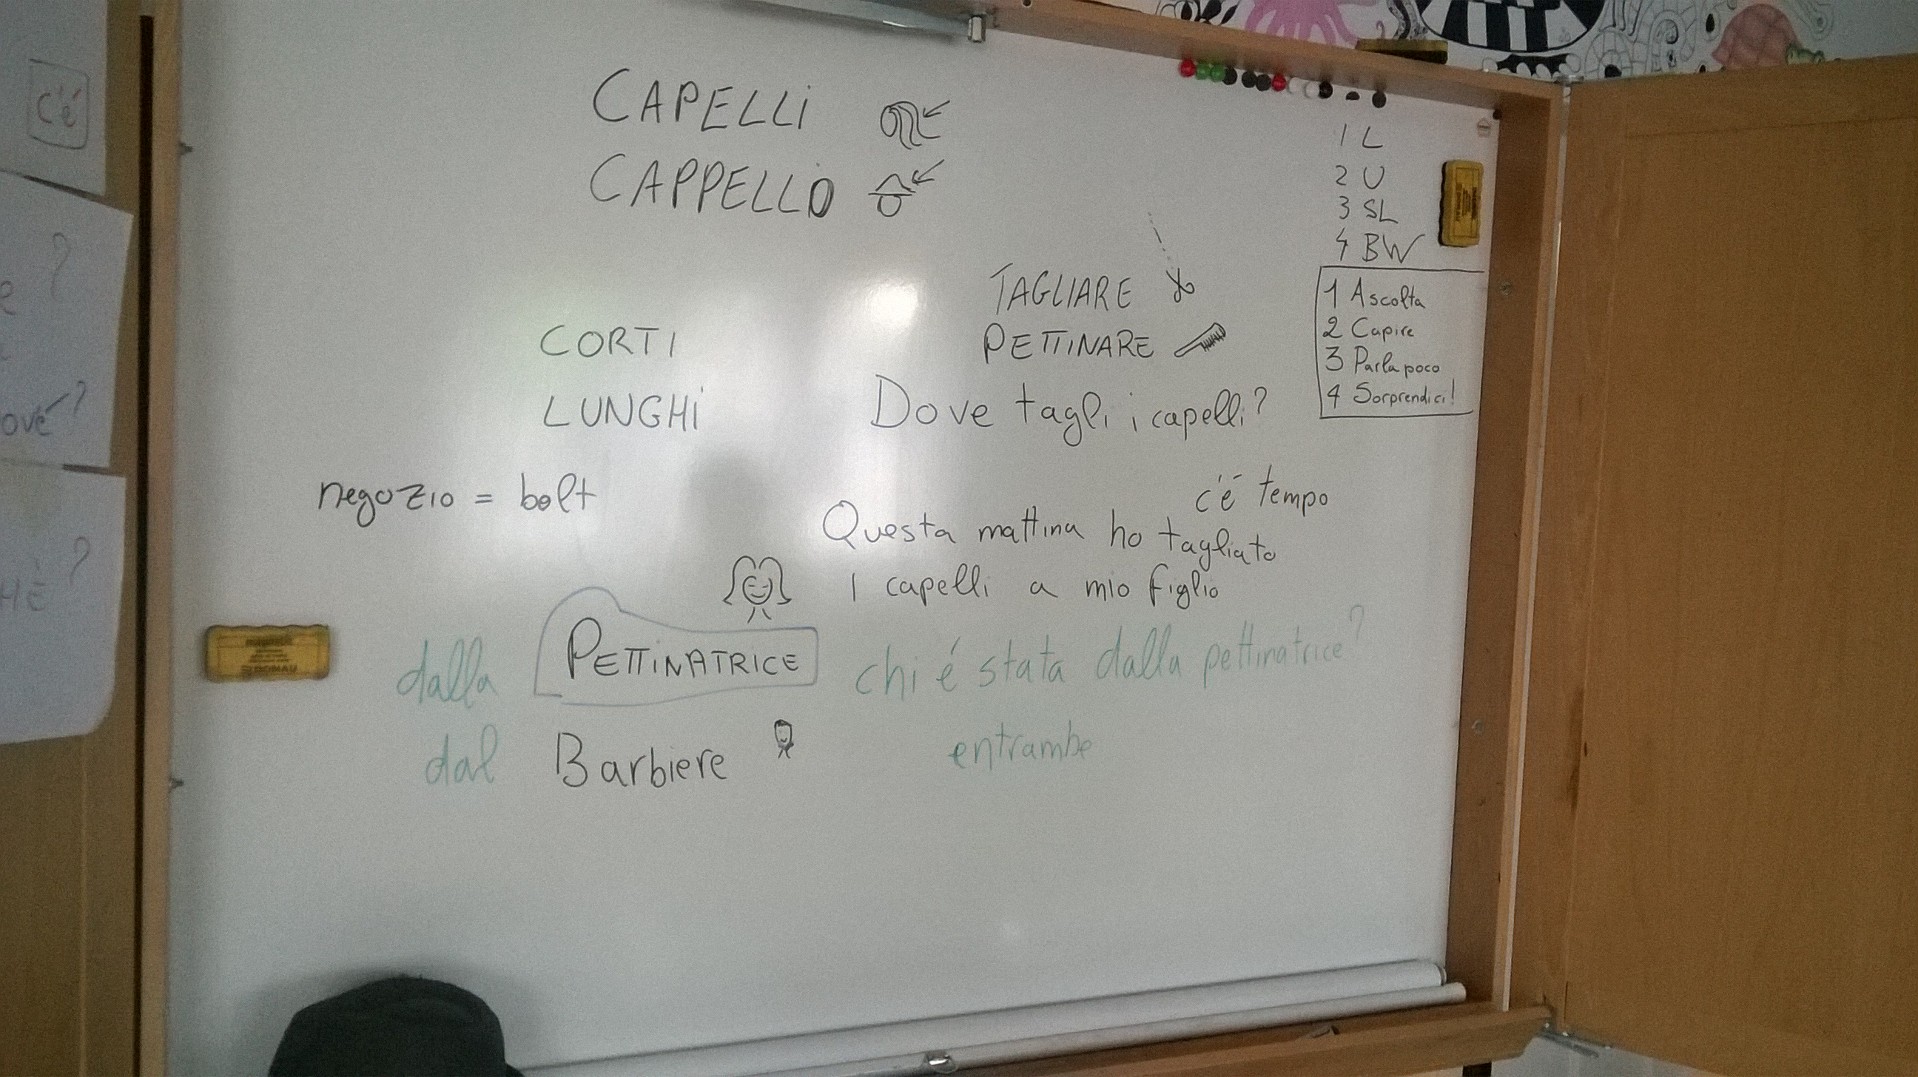 c'é
CAPELLI
CAPPELLO
1 L
2 U
3 SL
4 BW
1 Ascolta
2 Capire
3 Parla poco
4 Sorprendici!
TAGLIARE
PETTINARE
CORTI
LUNGHI
Dove tagli i capelli?
negozio = bolt
c'é tempo
Questa mattina ho tagliato
I capelli a mio figlio
dalla PETTINATRICE
chi é stata dalla pettinatrice?
dal Barbiere
entrambe